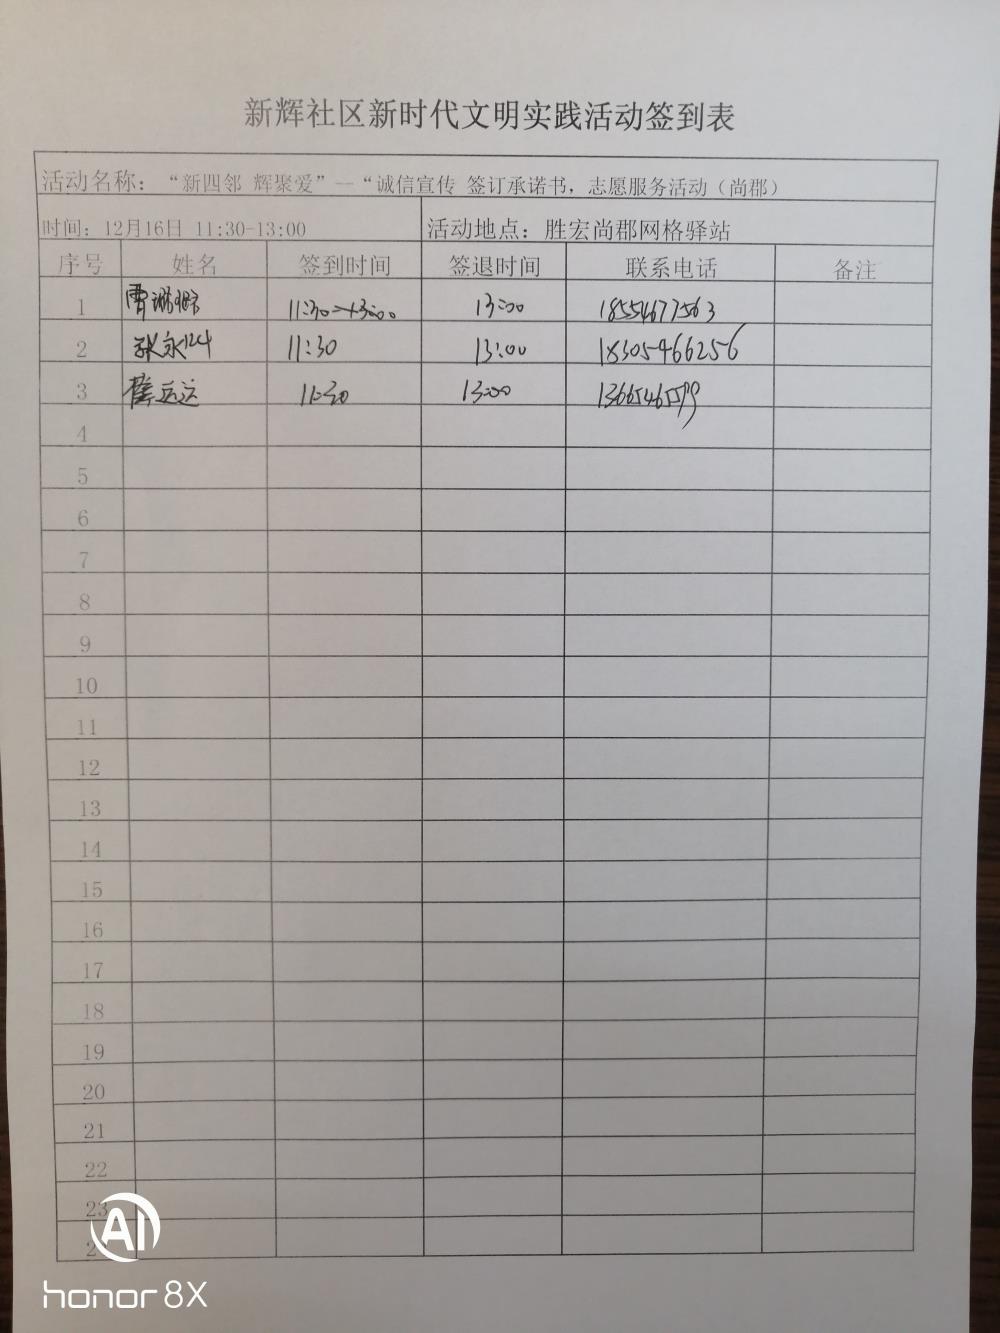 新辉社区新时代文明实践活动签到表
活动名称：“新四邻 辉聚爱”—“诚信宣传 签订承诺书，志愿服务活动（尚郡）
时间：12月16日 11:30-13:00 活动地点：胜宏尚郡网格驿站
序号 姓名 签到时间 签退时间 联系电话 备注
1 曹 11:30 13:00 13:00 18554677563
2 张永 11:30 13:00 18305466256
3 11:30 13:00
4
5
6
7
8
9
10
11
12
13
14
15
16
17
18
19
20
21
22
23
AI
honor 8X